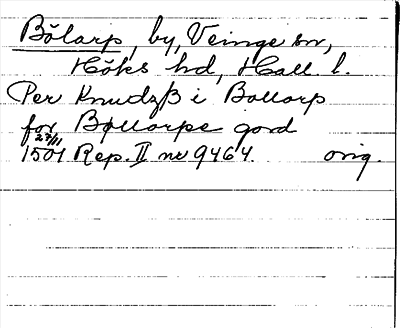 Bölarp, by, Veinge sn,
Höks hd, Hall. l.
Per Knudzß i Bollorp
for Bøllorpe gord
27/11
1501 Rep. II nr 9464. orig.